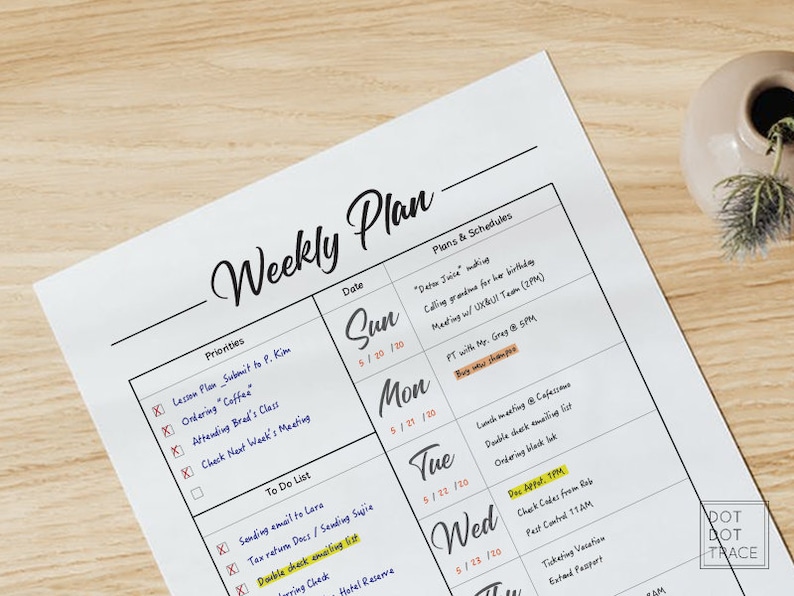 Weekly Plan
Priorities
Lesson Plan _Submit to P. Kim
Ordering "Coffee"
Attending Bred's Class
Check Next Week's Meeting
To Do List
Sending email to Lara
Tax return Docs / Sending Sujie
Double check emailing list
Check
Hotel Reserve
Date
Plans & Schedules
Sun
5 / 20 / 20
"Detox Juice" making
Calling grandma for her birthday
Meeting w/ UX&UI Team (2PM)
Mon
5 / 21 / 20
PT with Mr. Greg @ 5PM
Buy new shampoo
Tue
5 / 22 / 20
Lunch meeting @ Cafessano
Double check emailing list
Ordering black Ink
Wed
5 / 23 / 20
Doc Appot. 1PM
Check Codes from Rob
Pest Control 11AM
Thu
Ticketing Vacation
Extand Passport
DOT
DOT
TRACE